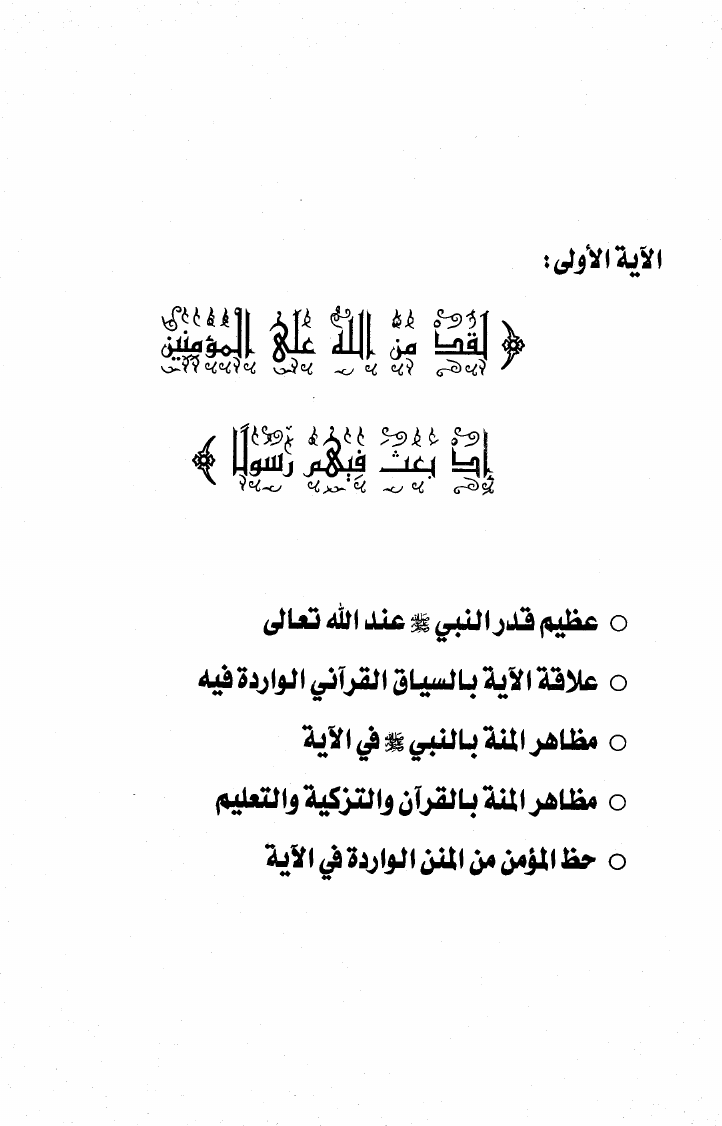 الآية الأولى:
﴿ لَقَدْ مَنَّ اللَّهُ عَلَى الْمُؤْمِنِينَ
إِذْ بَعَثَ فِيهِمْ رَسُولًا ﴾
○ عظيم قدر النبي ﷺ عند الله تعالى
○ علاقة الآية بالسياق القرآني الواردة فيه
○ مظاهر المنة بالنبي ﷺ في الآية
○ مظاهر المنة بالقرآن والتزكية والتعليم
○ حظ المؤمن من المنن الواردة في الآية